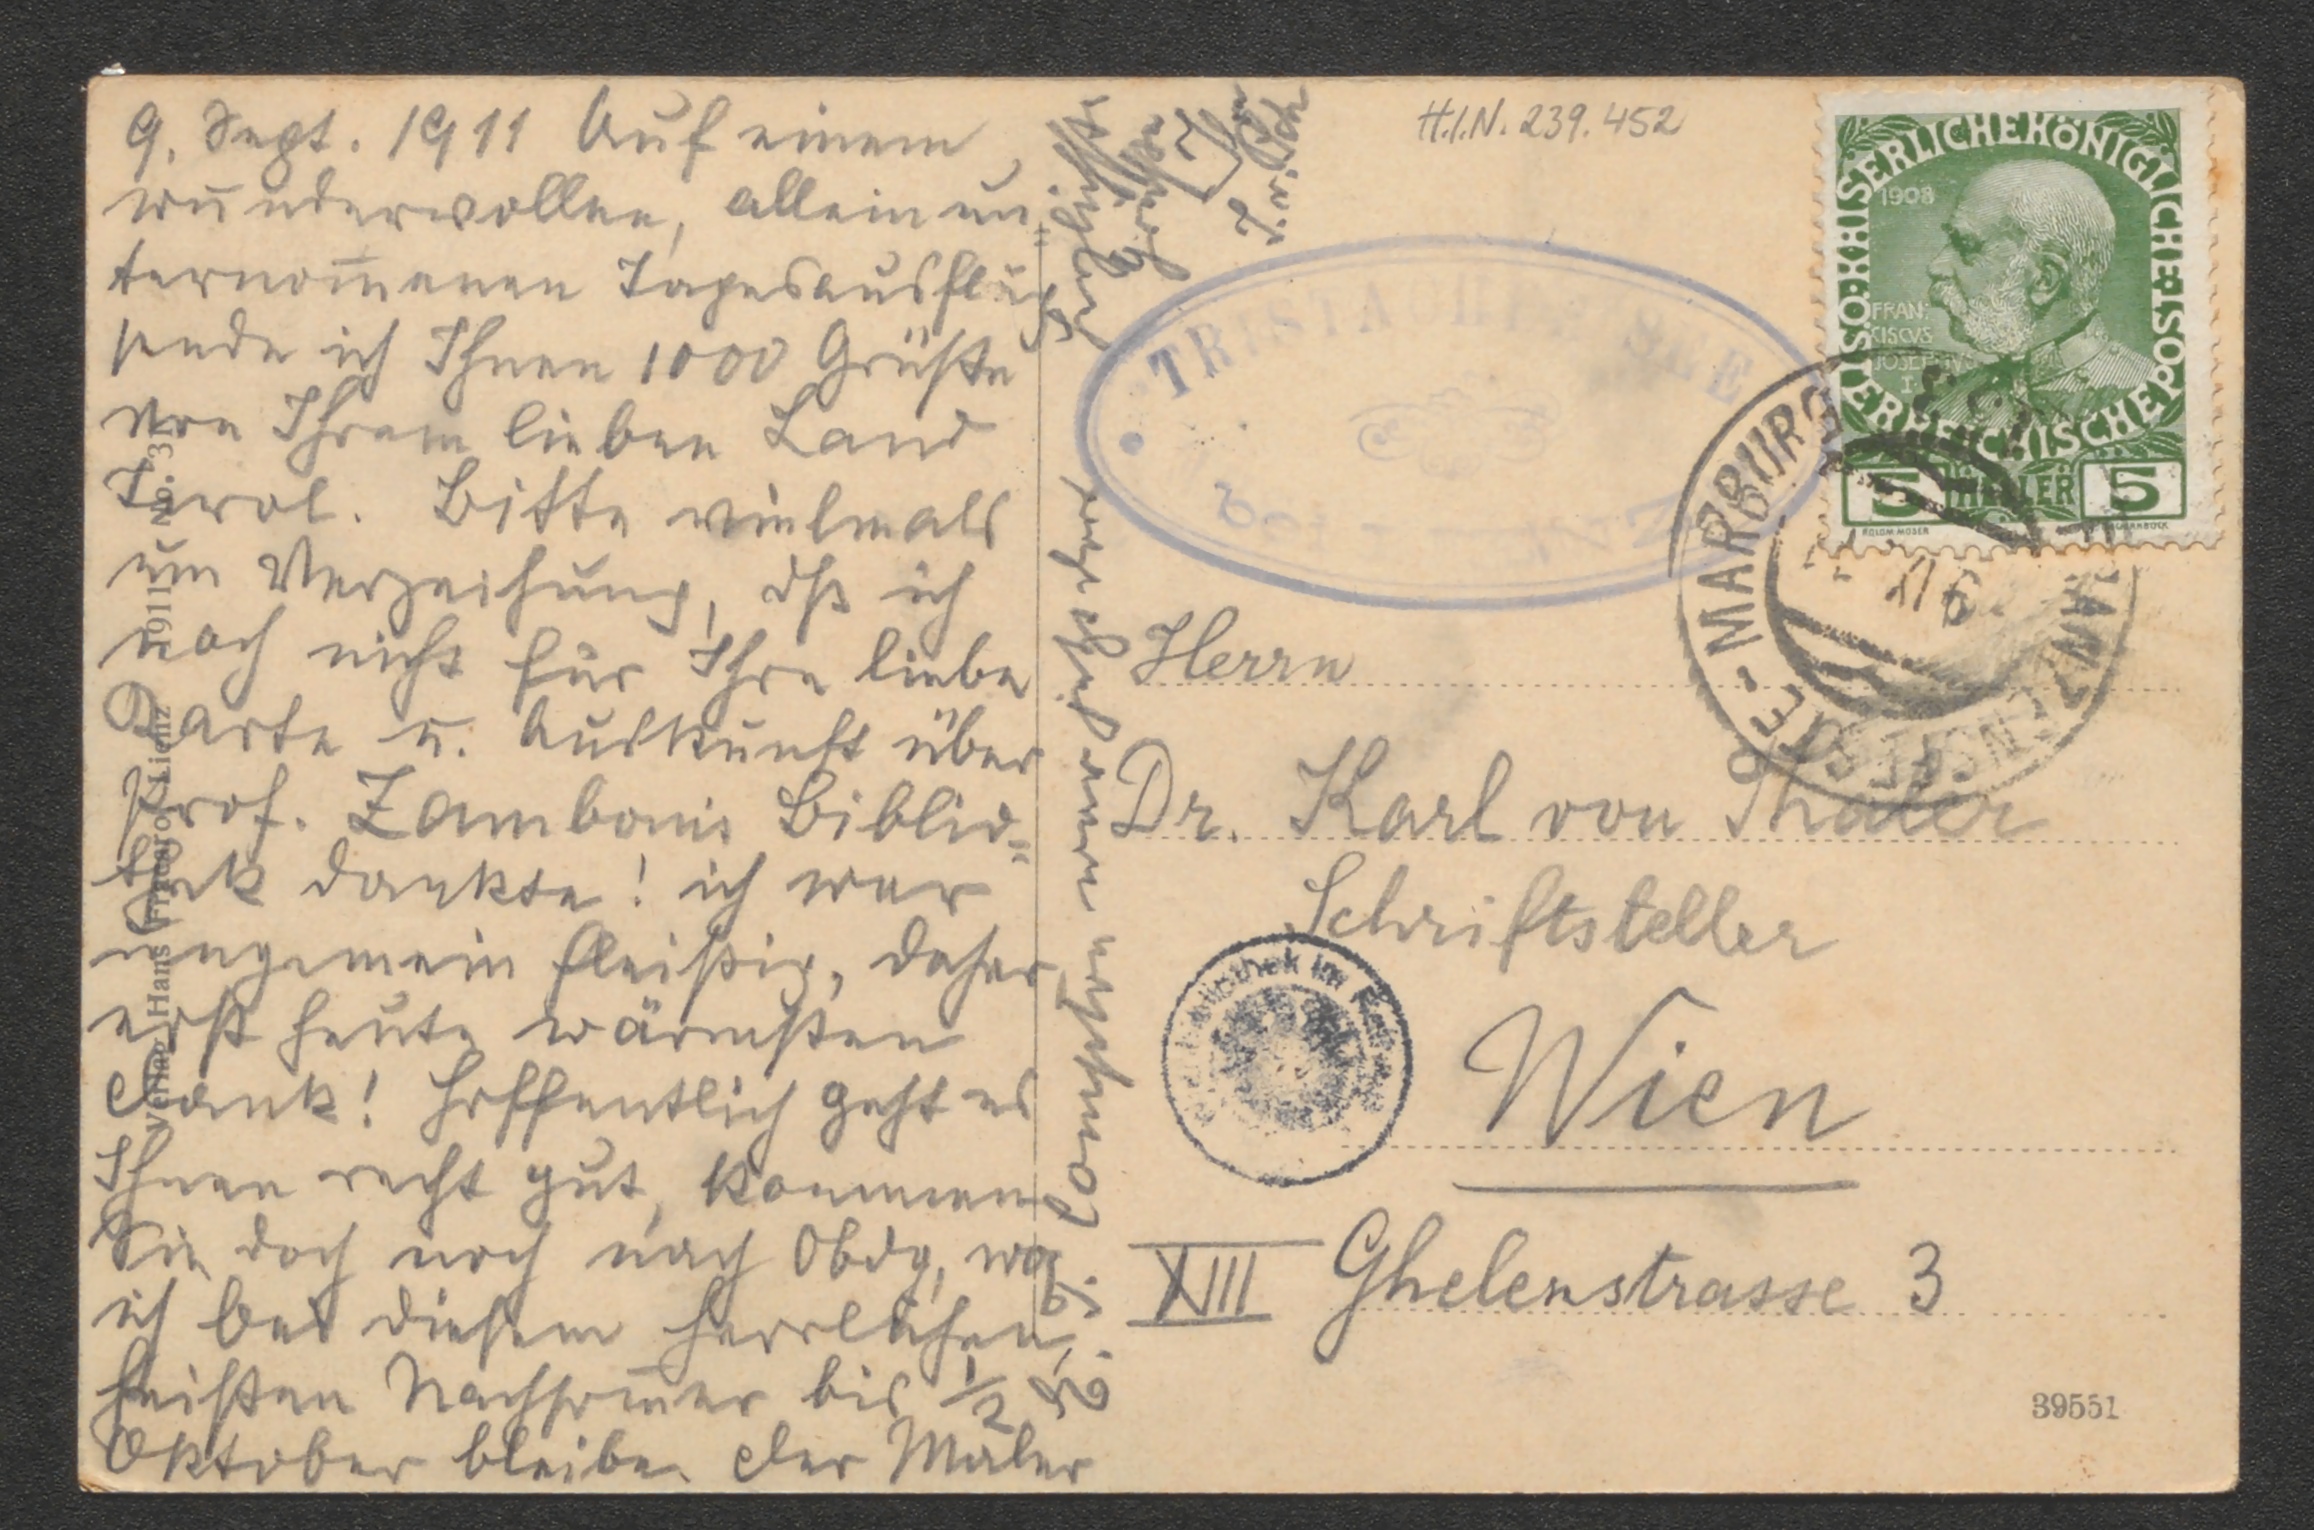 9. Sept. 1911 Auf einem
wundervollen, allein un=
ternom̅enen Tagesausflug
sende ich Ihnen 1000 Grüße
von Ihrem lieben Land
Tirol. Bitte vielmals
um Verzeihung, dß ich
noch nicht für Ihre liebe
Karte u. Auskunft über
Prof. Zambonis Biblio=
thek dankte! ich war
ungemein fleißig, daher
erst heute wärmsten
Dank! Hoffentlich geht es
Ihnen recht gut, kommen
Sie doch noch nach Obdg, wo
ich bei diesem herrlichen,
heißen Nachsom̅er bis 1/2
Oktober bleibe. Der Maler
Comp
war
Herzlichst
Grüße
Verlag Hans Lienz 1911 No. 31
H.I.N. 239.452
KAISERLICHEKÖNIGLICHE ÖSTERREICHISCHE POST
1908
FRAN
CISCVS
JOSEPHVS
I
5 HELLER 5
KOLOM. MOSER
TRISTACHER SEE
MARBURG
FRANZENSFESTE
Herrn
Dr. Karl von Thaler
Schriftsteller
Wien
XIII Ghelenstrasse 3
39551